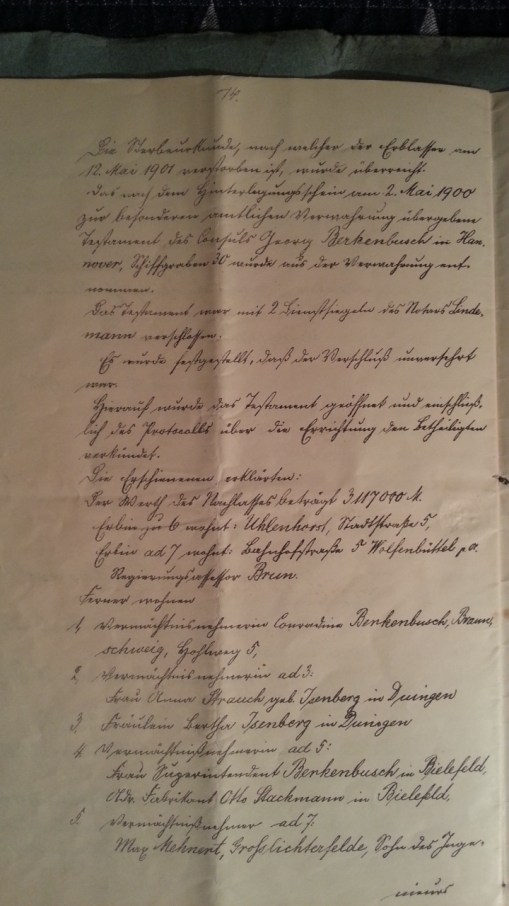 14.
Die Sterbeurkunde, nach welcher der Erblasser am
12. Mai 1901 verstorben ist, wurde überreicht.
Das nach dem Hinterlegungsschein am 2. Mai 1900
zur besonderen amtlichen Verwahrung übergebene
Testament des Consuls Georg Berkenbusch in Han-
nover, Schiffgraben 30 wurde aus der Verwahrung ent-
nommen.
Das Testament war mit 2 Dienstsiegeln des Notars Linde-
mann verschlossen.
Es wurde festgestellt, daß der Verschluß unversehrt
war.
Hierauf wurde das Testament geöffnet und einschließ-
lich des Protocolls über die Errichtung den Betheiligten
verkündet.
Die Erschienenen erklärten:
Der Werth des Nachlasses beträgt 3.117000 M.
Erbin zu 6 wohnt: Uhlenhorst, Stadtstraße 5,
Erbin ad 7 wohnt: Bahnhofstraße 5 Wolfenbüttel p.a.
Regierungsassessor Brun.
Ferner wohnen
1. Vermächtnisnehmerin Conradine Berkenbusch, Braun-
schweig, Hohlweg 5,
2. Vermächtnisnehmerin ad 3:
Frau Anna Strauch geb. Isenberg in Duingen
3. Fräulein Bertha Isenberg in Duingen
4. Vermächtnißnehmerin ad 5:
Frau Superintendent Berkenbusch in Bielefeld,
Adr. Fabrikant Otto Stackmann in Bielefeld,
5. Vermächtnißnehmer ad 7:
Max Mehnert, Grosslichterfelde, Sohn des Inge-
nieurs